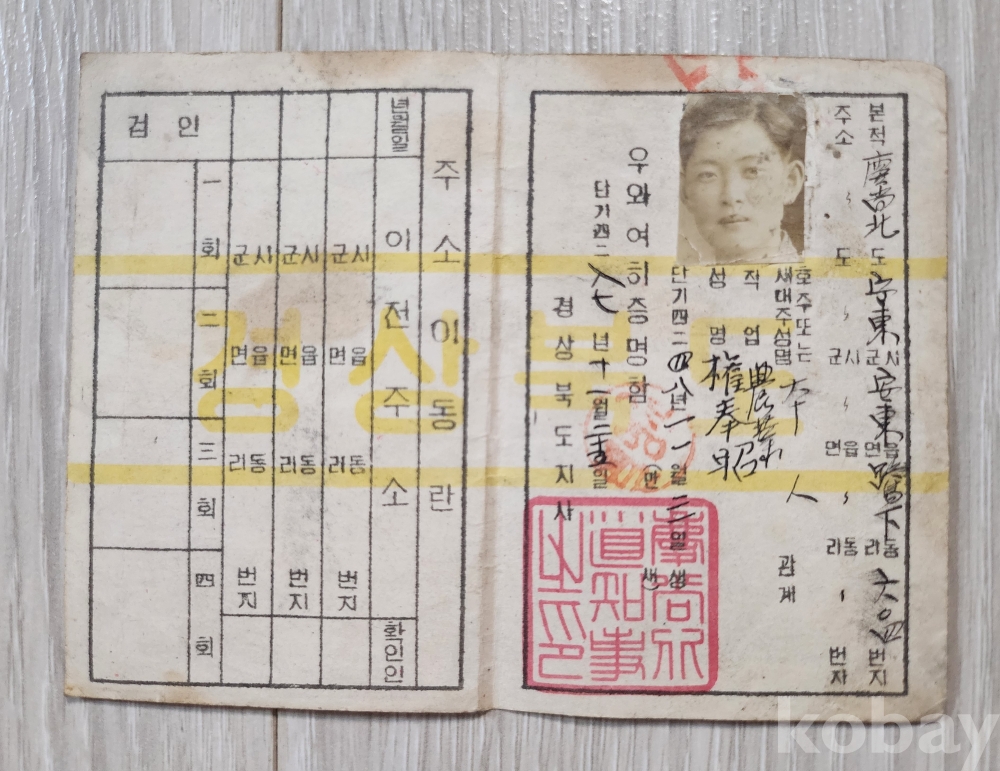 본적 慶尙北 도 安東 군시 安東 면읍 동리 六○四 번지
주소 〃 도 〃 군시 〃 면읍 〃 리동 〃 번지
호주또는
새대주성명
本人
관계
직업 農業
성명 權奉昭
단기四二四八년一一월三일생
(만 세)
우와여히증명함
단기四二八七년十一월二五일
경상북도지사
慶尙北
道知事
之印
경상북도
주소이동란
년월일
이전주소
확인인
군시 면읍 리동 번지
군시 면읍 리동 번지
군시 면읍 리동 번지
검인
一회
二회
三회
四회
kobay